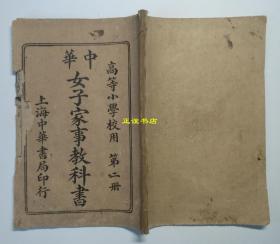 高等小學校用 第二冊
中華
女子家事教科書
上海中華書局印行
正谊书店